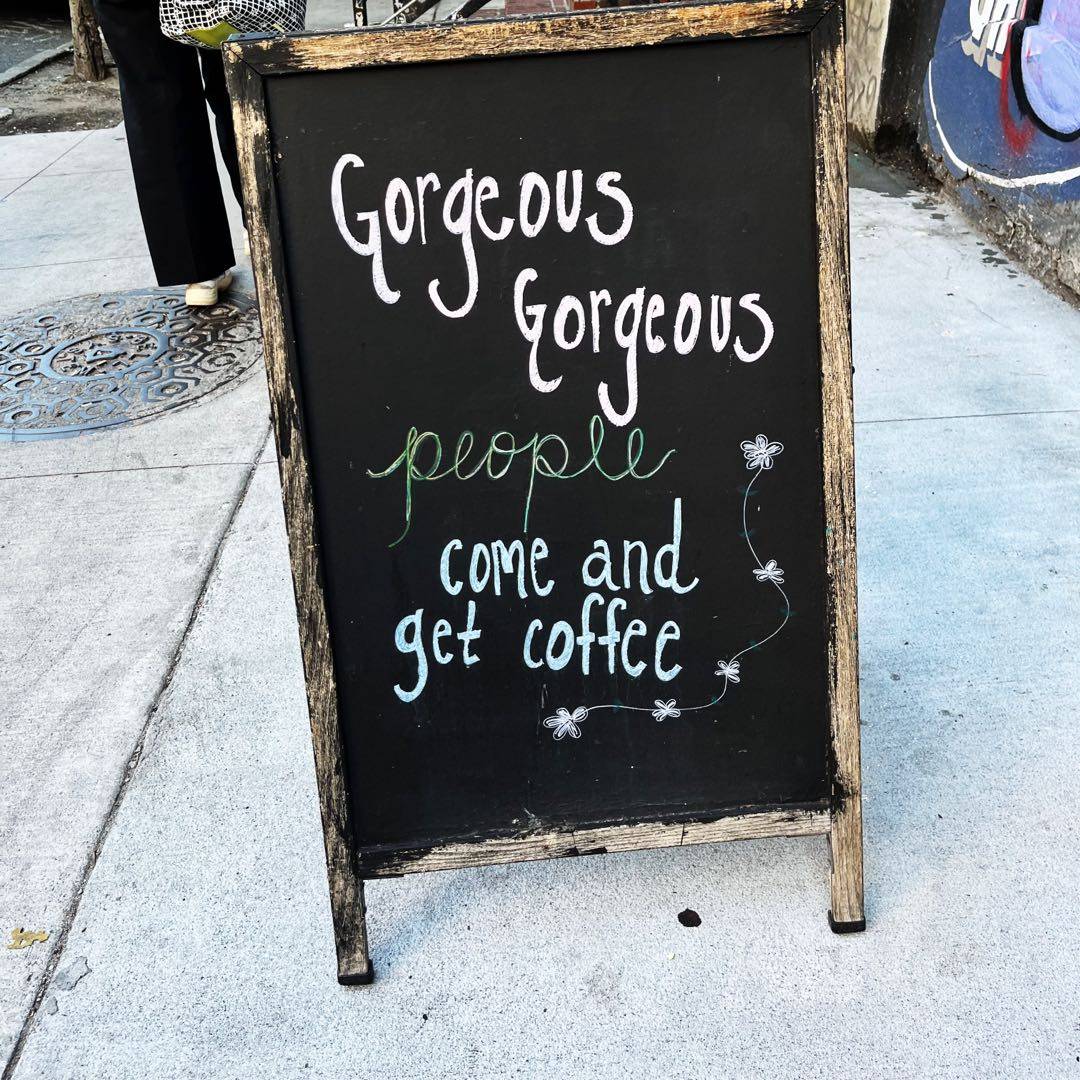 Gorgeous
Gorgeous
people
come and
get coffee